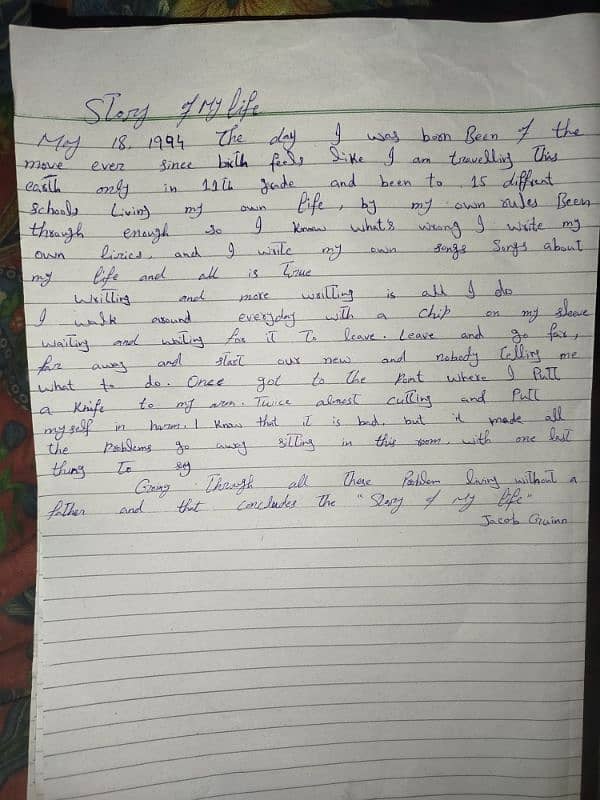 Story of My life
May 18, 1994 The day I was born Been of the
move ever since birth feels like I am travelling This
earth only in 11Th grade and been to 15 diffrent
schools Living my own life, by my own rules Been
through enough so I know what's wrong I write my
own lirics, and I write my own songs Songs about
my life and all is True
Writting and more writting is all I do
I walk around everyday with a chip on my sleave
waiting and waiting for it To leave. Leave and go far,
far away and start our new and nobody telling me
what to do. Once got to the Pont where I Pull
a Knife to my arm. Twice almost cutting and Pull
myself in harm. I Know that it is bad, but it made all
the Problems go away sitting in this room, with one last
thing To say
Going Through all these Problem living without a
father and that concludes the "Story of My life"
Jacob Guinn